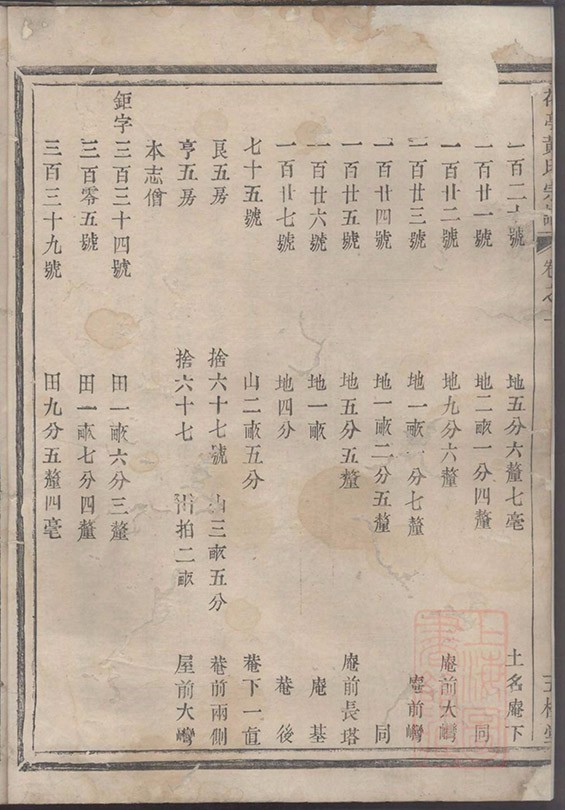 黃氏宗譜 卷之一
一百二十號 地五分六釐七毫 土名庵下
一百廿一號 地二畝一分四釐 同
一百廿二號 地九分六釐 庵前大灣
一百廿三號 地一畝一分七釐 庵前灣
一百廿四號 地一畝二分五釐 同
一百廿五號 地五分五釐 庵前長塔
一百廿六號 地一畝 庵基
一百廿七號 地四分 菴後
七十五號 山二畝五分 菴下一直
良五房 捨六十七號 山三畝五分 菴前兩側
亨五房 捨六十七 拍二畝 屋前大灣
本志僧
鉅字三百三十四號 田一畝六分三釐
三百零五號 田一畝七分四釐
三百三十九號 田九分五釐四毫
上海